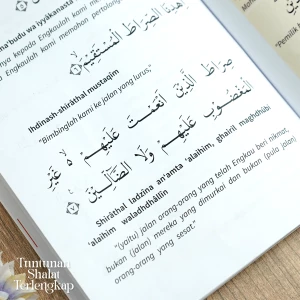 na'budu wa iyyâkanasta
nya kepada Engkaulah kami menyembah
Engkaulah kami memohon pertolong
اِهْدِنَا الصِّرَاطَ الْمُسْتَقِيْمَ ۙ ٦
Ihdinash-shirâthal mustaqîm
"Bimbinglah kami ke jalan yang lurus,"
صِرَاطَ الَّذِيْنَ اَنْعَمْتَ عَلَيْهِمْ ەۙ غَيْرِ
الْمَغْضُوْبِ عَلَيْهِمْ وَلَا الضَّاۤلِّيْنَ ٧
Shirâthal ladzîna an'amta 'alaihim, ghairil maghdhûbi
'alaihim waladhdhâllîn
"(yaitu) jalan orang-orang yang telah Engkau beri nikmat,
bukan (jalan) mereka yang dimurkai dan bukan (pula jalan)
orang-orang yang sesat."
"Pemilik
Tuntunan
Shalat
Terlengkap